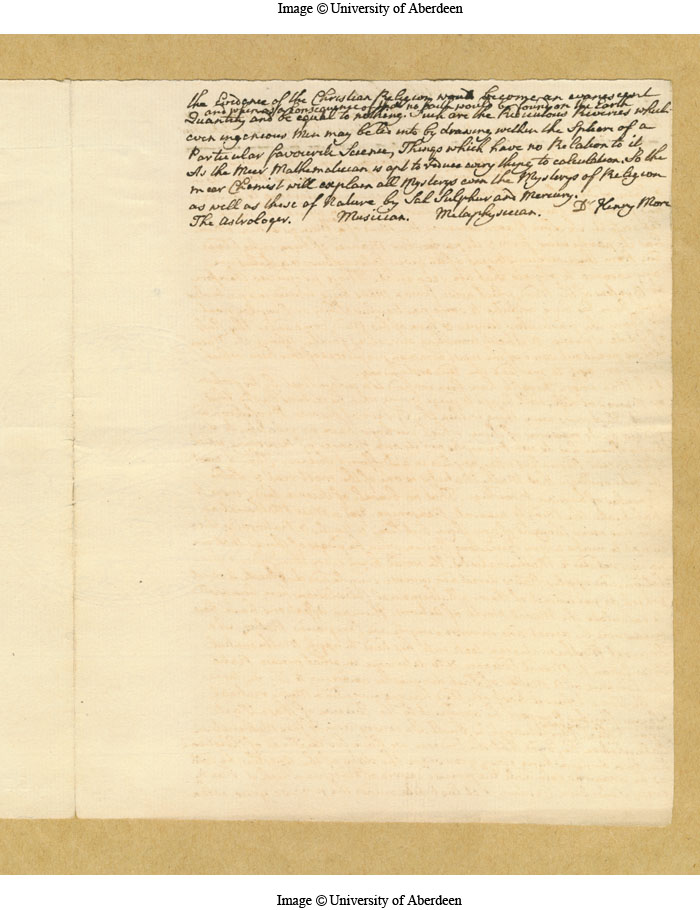 Image © University of Aberdeen
the Evidence of the Christian Religion would become an evanescent
and when as a consequence of that no faith would be found on the Earth
Quantity and be equal to nothing. Such are the Ridiculous Reveries which
even ingeneous Men may be led into by drawing within the Sphere of a
Particular favourite Science, Things which have no Relation to it
As the Meer Mathematician is apt to reduce every thing to calculation. So the
meer Chemist will explain all Mysterys even the Mysterys of Religion
as well as those of Nature by Sal Sulphur and Mercury.
The Astrologer. Musician. Metaphysician. Dr Henry More
Image © University of Aberdeen